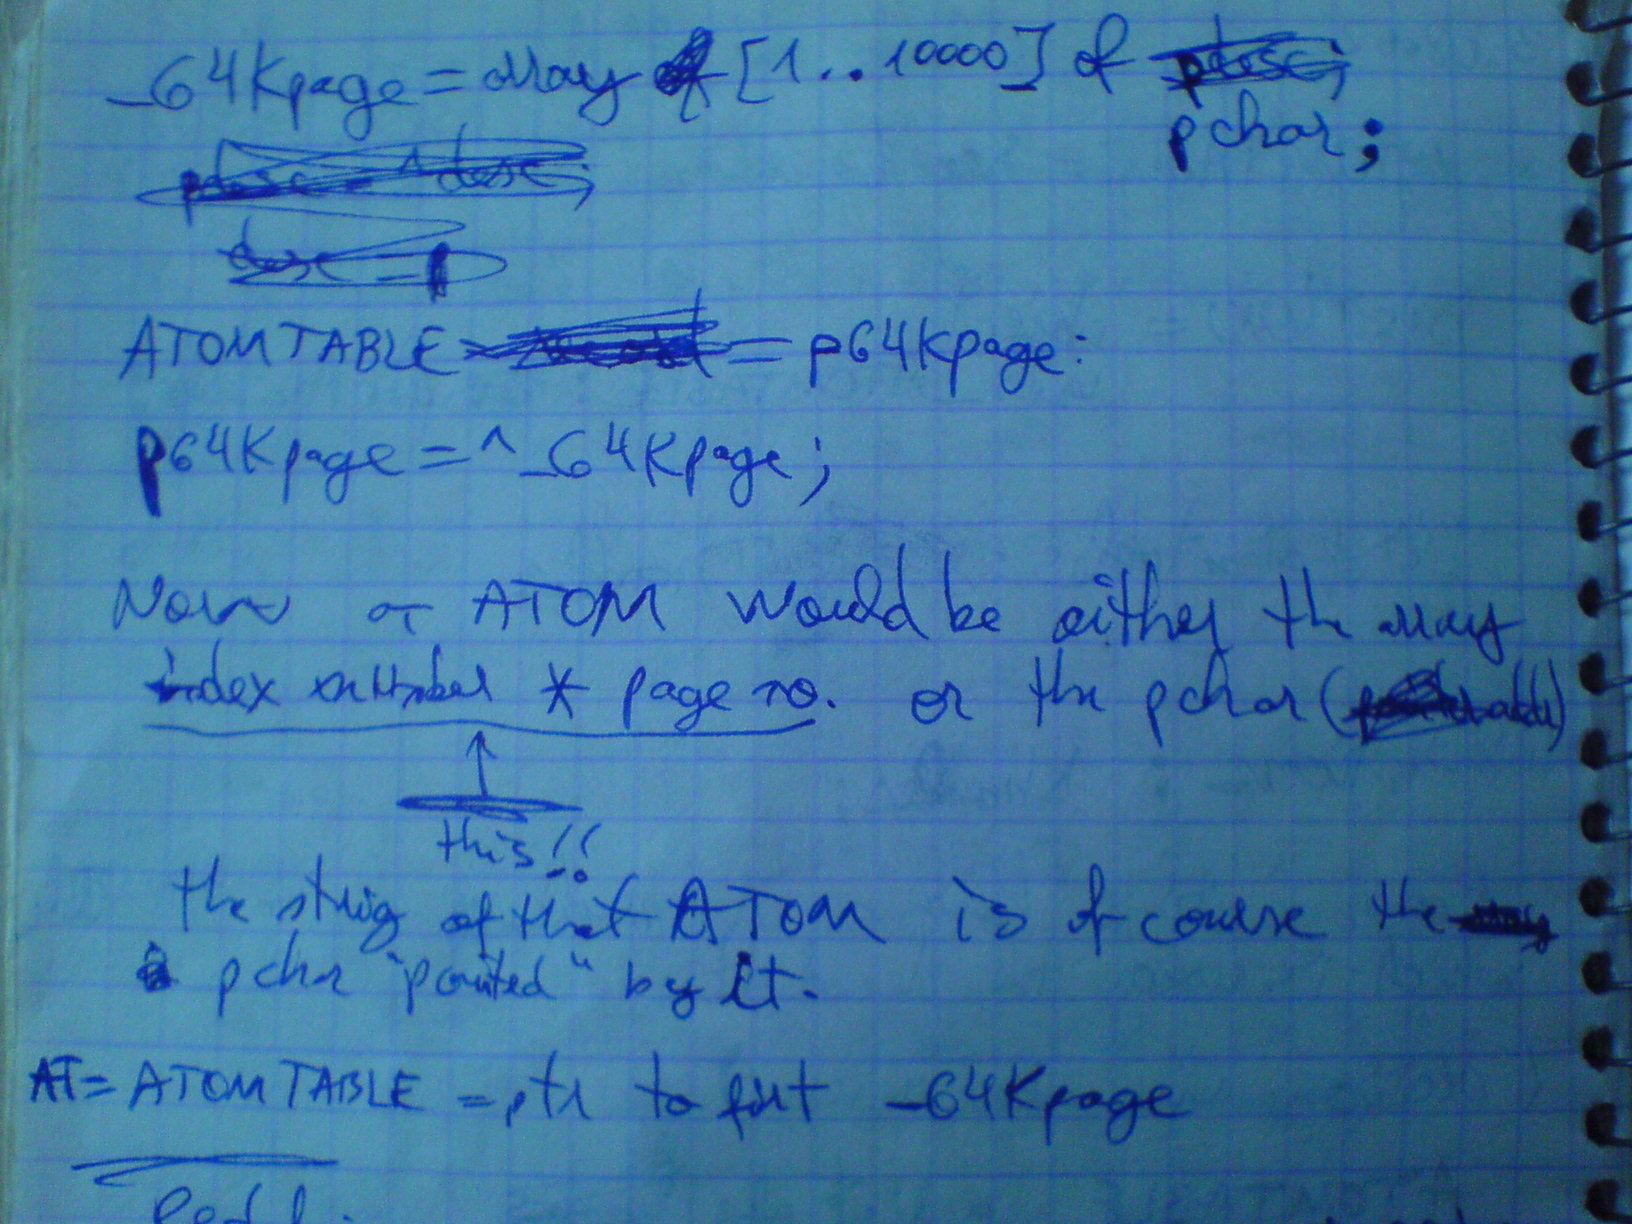 _64Kpage = array [1..10000] of
pchar;
ATOMTABLE = p64Kpage:
p64Kpage = ^_64Kpage;
Now a ATOM would be either the array
index number * page no. or the pchar (
this!!
the string of that ATOM is of course the
pchar "pointed" by it.
AT = ATOMTABLE = ptr to first _64Kpage